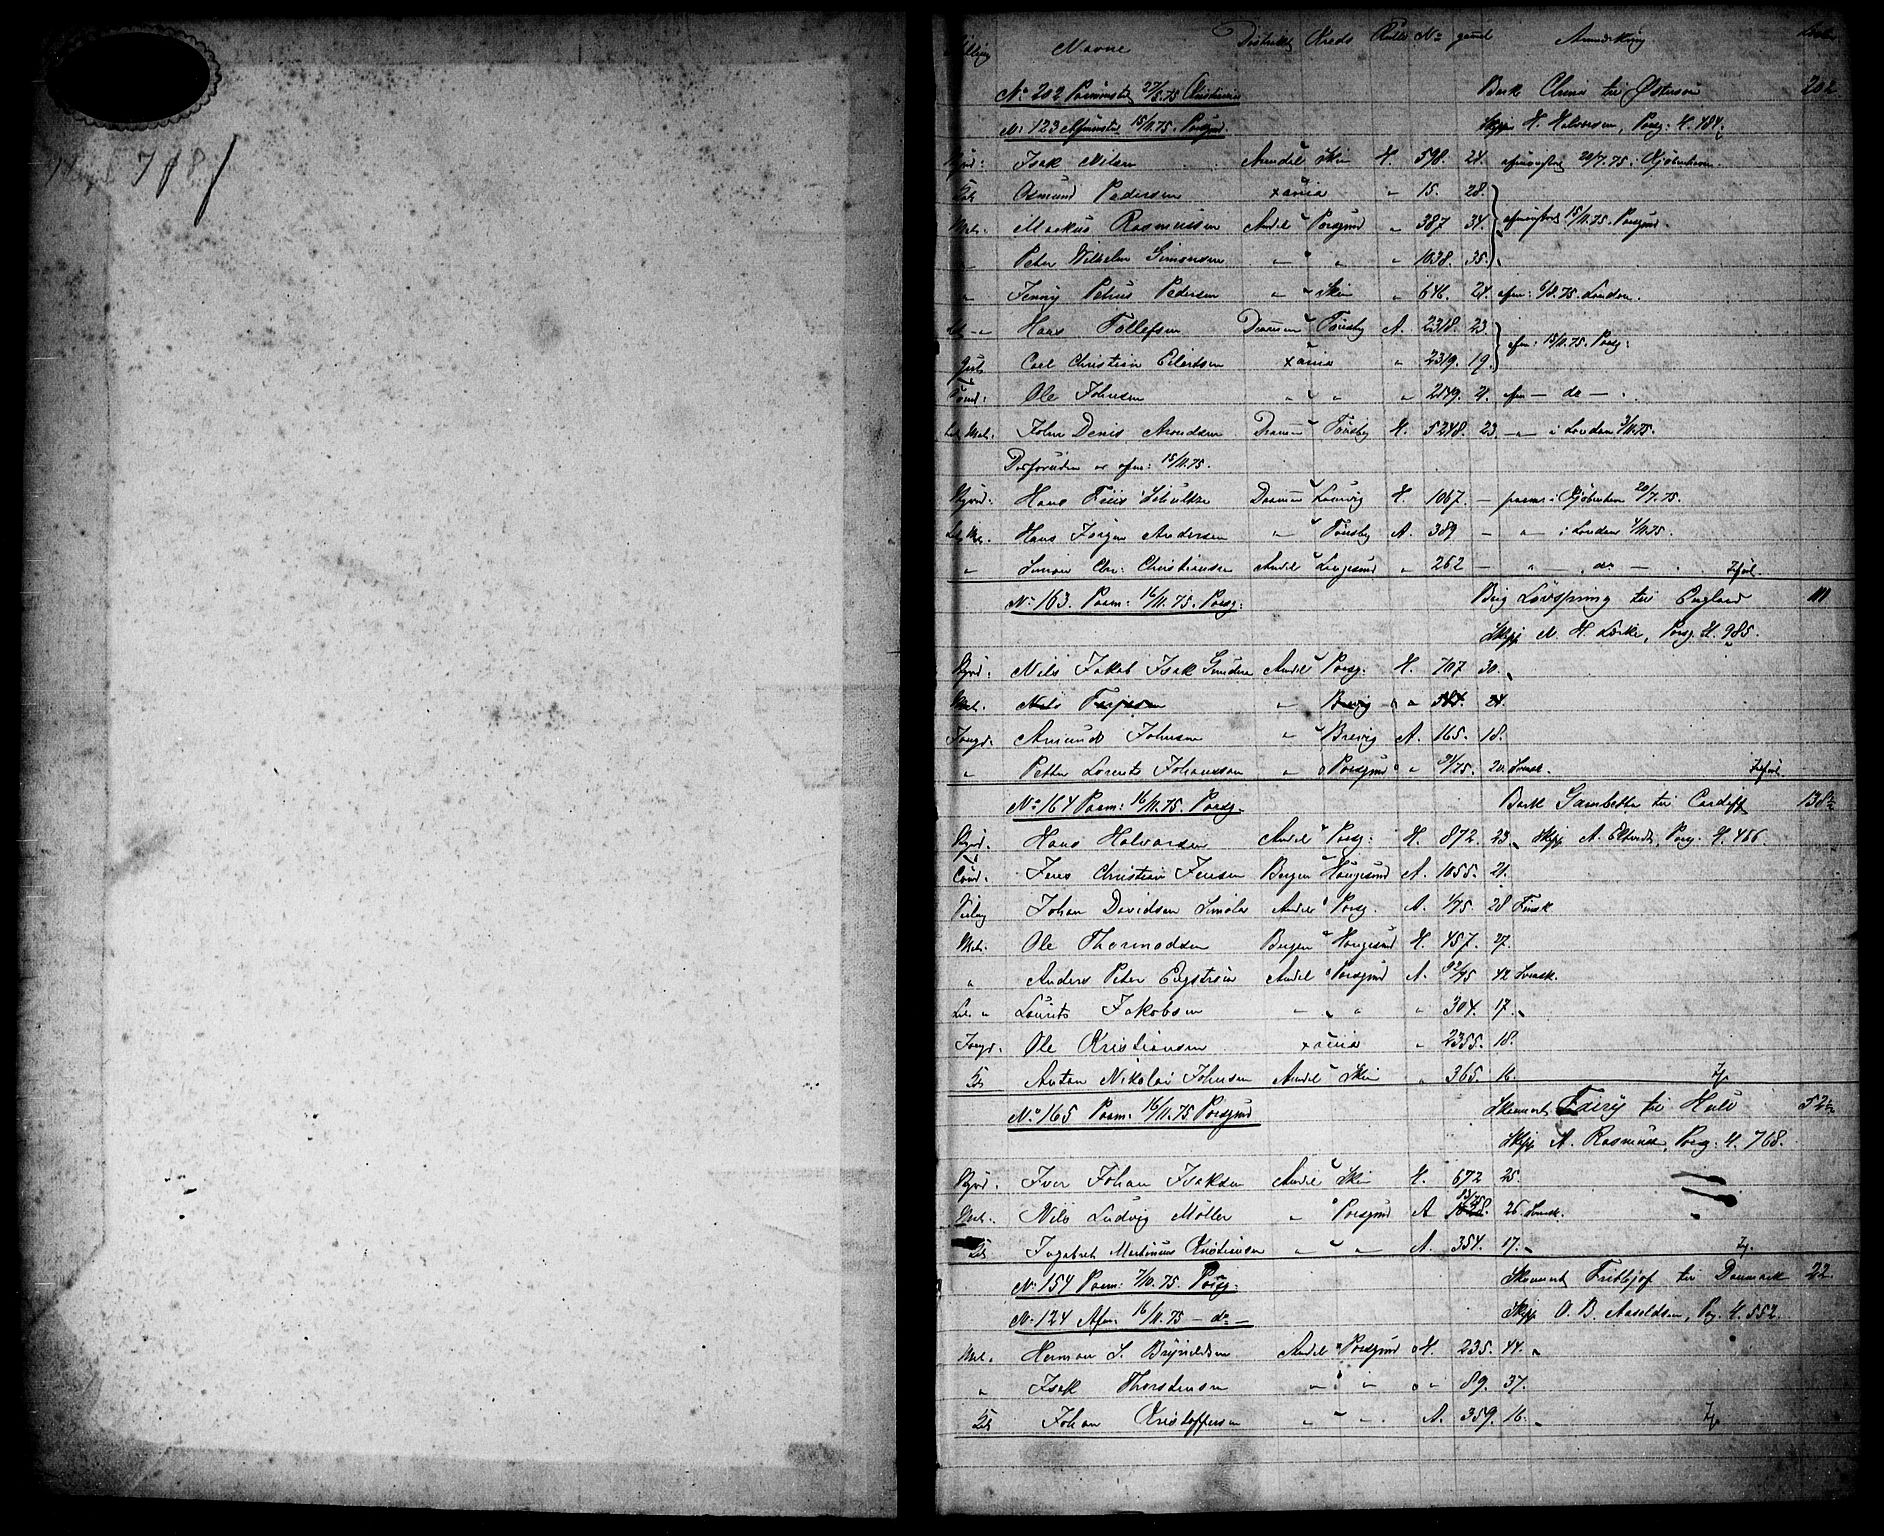 Stilling Navne Distrikt Kreds Rulle No gaml Anmærkning
No 202 Paamønstr 27/5.75 Kristiania Bark China til Østersøen 202
No 123 Afmønstr 15/11.75. Porsgrund Skipp H. Halvorsen, Porsg. H. 484.
Styrd: Isak Nilsen Arendal Skien H. 598. 24. afmønstret 20/7.75 i Kjøbenhavn.
Osmund Pedersen Xania " 15. 28.
Mat. Markus Rasmussen Arendal Porsgrund " 387 34. afmønstret 15/11.75. Porsgrund.
" Peter Wilhelm Simonsen " " " 1038. 35.
" Jenny Petrus Pedersen " Skien " 646. 24. afm: 6/11.75. London.
Let. " Hans Tollefsen Drammen Tønsbg A. 2318. 23.
Carl Christian Eilertsen Xania " 2319. 19. afm: 15/11.75. Porsg:
Tømd: Ole Johnsen " " " 2549. 21. afm — do — .
Let. Mat. John Denis Arendsen Drammen Tønsbg H. 5248. 23. — " — i London 3/11.75.
Desforuden er afm: 15/11.75.
Styrd. Hans Friis Schultze Drammen Laurvig H. 1067. — paam: i Kjøbenhavn 20/7.75.
Let. Mat. Hans Jörgen Andersen " Tønsbg A. 389 — " — i London 4/11.75.
" Simon Chr. Christiansen Arendal Langesund " 262 — " — do — .
No 163. Paam: 16/11.75. Porsg. Brig Løvspring til England 111
Skipp N. H. Lirke, Porsg. H. 985.
Styrd. Nils Jakob Isak Gundersen Arendal Porsg. H. 707 30.
Mat. Nils Terjesen " Brevig " 384. 24.
Jungd. Amund Johnsen " Brevig A. 165. 18.
" Petter Lorents Johansson " Porsgrund " 91/75. 20. Svensk.
No 164 Paam: 16/11.75. Porsg. Bark Gambetta til Cardiff 138½
Styrd. Hans Halvorsen Arendal Porsg. H. 872. 23. Skipp A. Eltvedt, Porsg. H. 466.
Tömd. Jens Christian Jensen Bergen Haugesund A. 1055. 21.
Johan Davidsen Simola Arendal Porsg. A. 1/75. 28 Finsk
Mat. Ole Thormodsen Bergen Haugesund H. 457. 27.
" Anders Peter Engström Arendal Porsgrund A. 92/75 42 Svensk.
Let. " Laurits Jakobsen " " " 304. 17.
Jungd. Ole Kristiansen Xania " 2355. 18.
Anton Nikolai Johnsen Arendal Skien " 365. 16.
No 165 Paam: 16/11.75 Porsgrund Skonnert Fairy til Hull 52½
Skipp A. Rasmussen, Porsg. H. 768.
Styrd. Iver Johan Isaksen Arendal Skien H. 672 25
Mat. Nils Ludvig Möller " Porsgrund A 93/75 26 Svensk.
Ingebret Martinius Kristiansen " " " A. 354. 17.
No 154 Paam: 7/10.75. Porsg. Skonnert Frithjof til Danmark 22.
No 124 Afm. 16/11.75 — do — Skipp O. B. Aaseldsen, Pg. H. 552.
Mat. Herman S. Brynildsen Arendal Porsgrund H. 235. 44.
" Isak Thorstensen " " " 89. 37.
Johan Kristoffersen " " A. 359. 16.